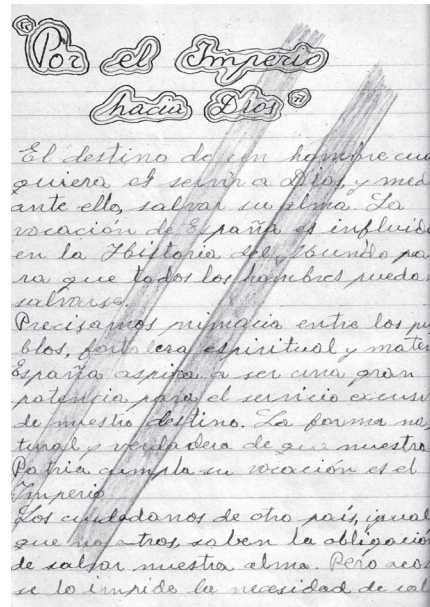 "Por el Imperio
hacia Dios"
El destino de un hombre cual
quiera es servir a Dios, y medi
ante ello, salvar su alma. La
vocación de España es influir
en la Historia del Mundo pa
ra que todos los hombres pueda
salvarse.
Precisamos primacia entre los pu
blos, fortaleza espiritual y mater
España aspira a ser una gran
potencia para el servicio
de nuestro destino. La forma na
tural y verdadera de que nuestra
Patria cumpla su vocación es el
Imperio
Los ciudadanos de otro país, igual
que nosotros, saben la obligación
de salvar nuestra alma. Pero acas
se lo impide la necesidad de